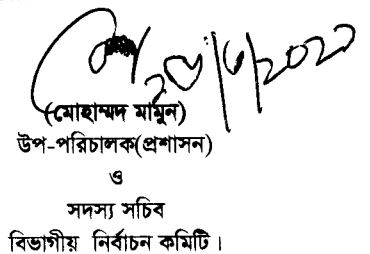 (মোহাম্মদ মামুন)
উপ-পরিচালক(প্রশাসন)
ও
সদস্য সচিব
বিভাগীয় নির্বাচন কমিটি।